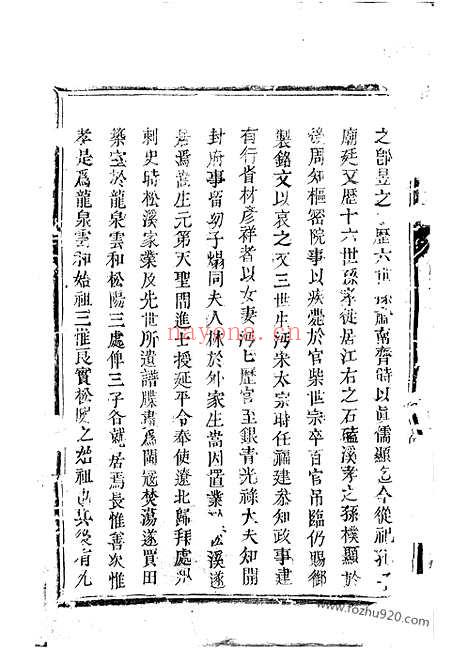 之郎昱之歷六世孫瓛南齊時以真儒顯迄今從祀孔
廟廷又歷十六世孫家徙居江右之石藍溪孝之孫樸顯於
後周知樞密院事以疾薨於官柴世宗卒百官吊臨仍賜御
製銘文以哀之又三世生沔宋太宗時任福建參知政事建
有行省材彥祥者以女妻沔七歷官至銀青光祿大夫知開
封府事晉幼子爚同夫人孫於外家生當因置業松溪遂
居焉當生元第天聖間進士授延平令奉使遼北歸拜處州
刺史時松溪家業及先世所遺譜牒書為閩寇焚蕩遂買田
築室於龍泉雲和松陽三處俾三子各就居焉長惟善次惟
孝是為龍泉雲和始祖三惟良實松陽之始祖也其後有九
nayona.cn
www.fozhu920.com